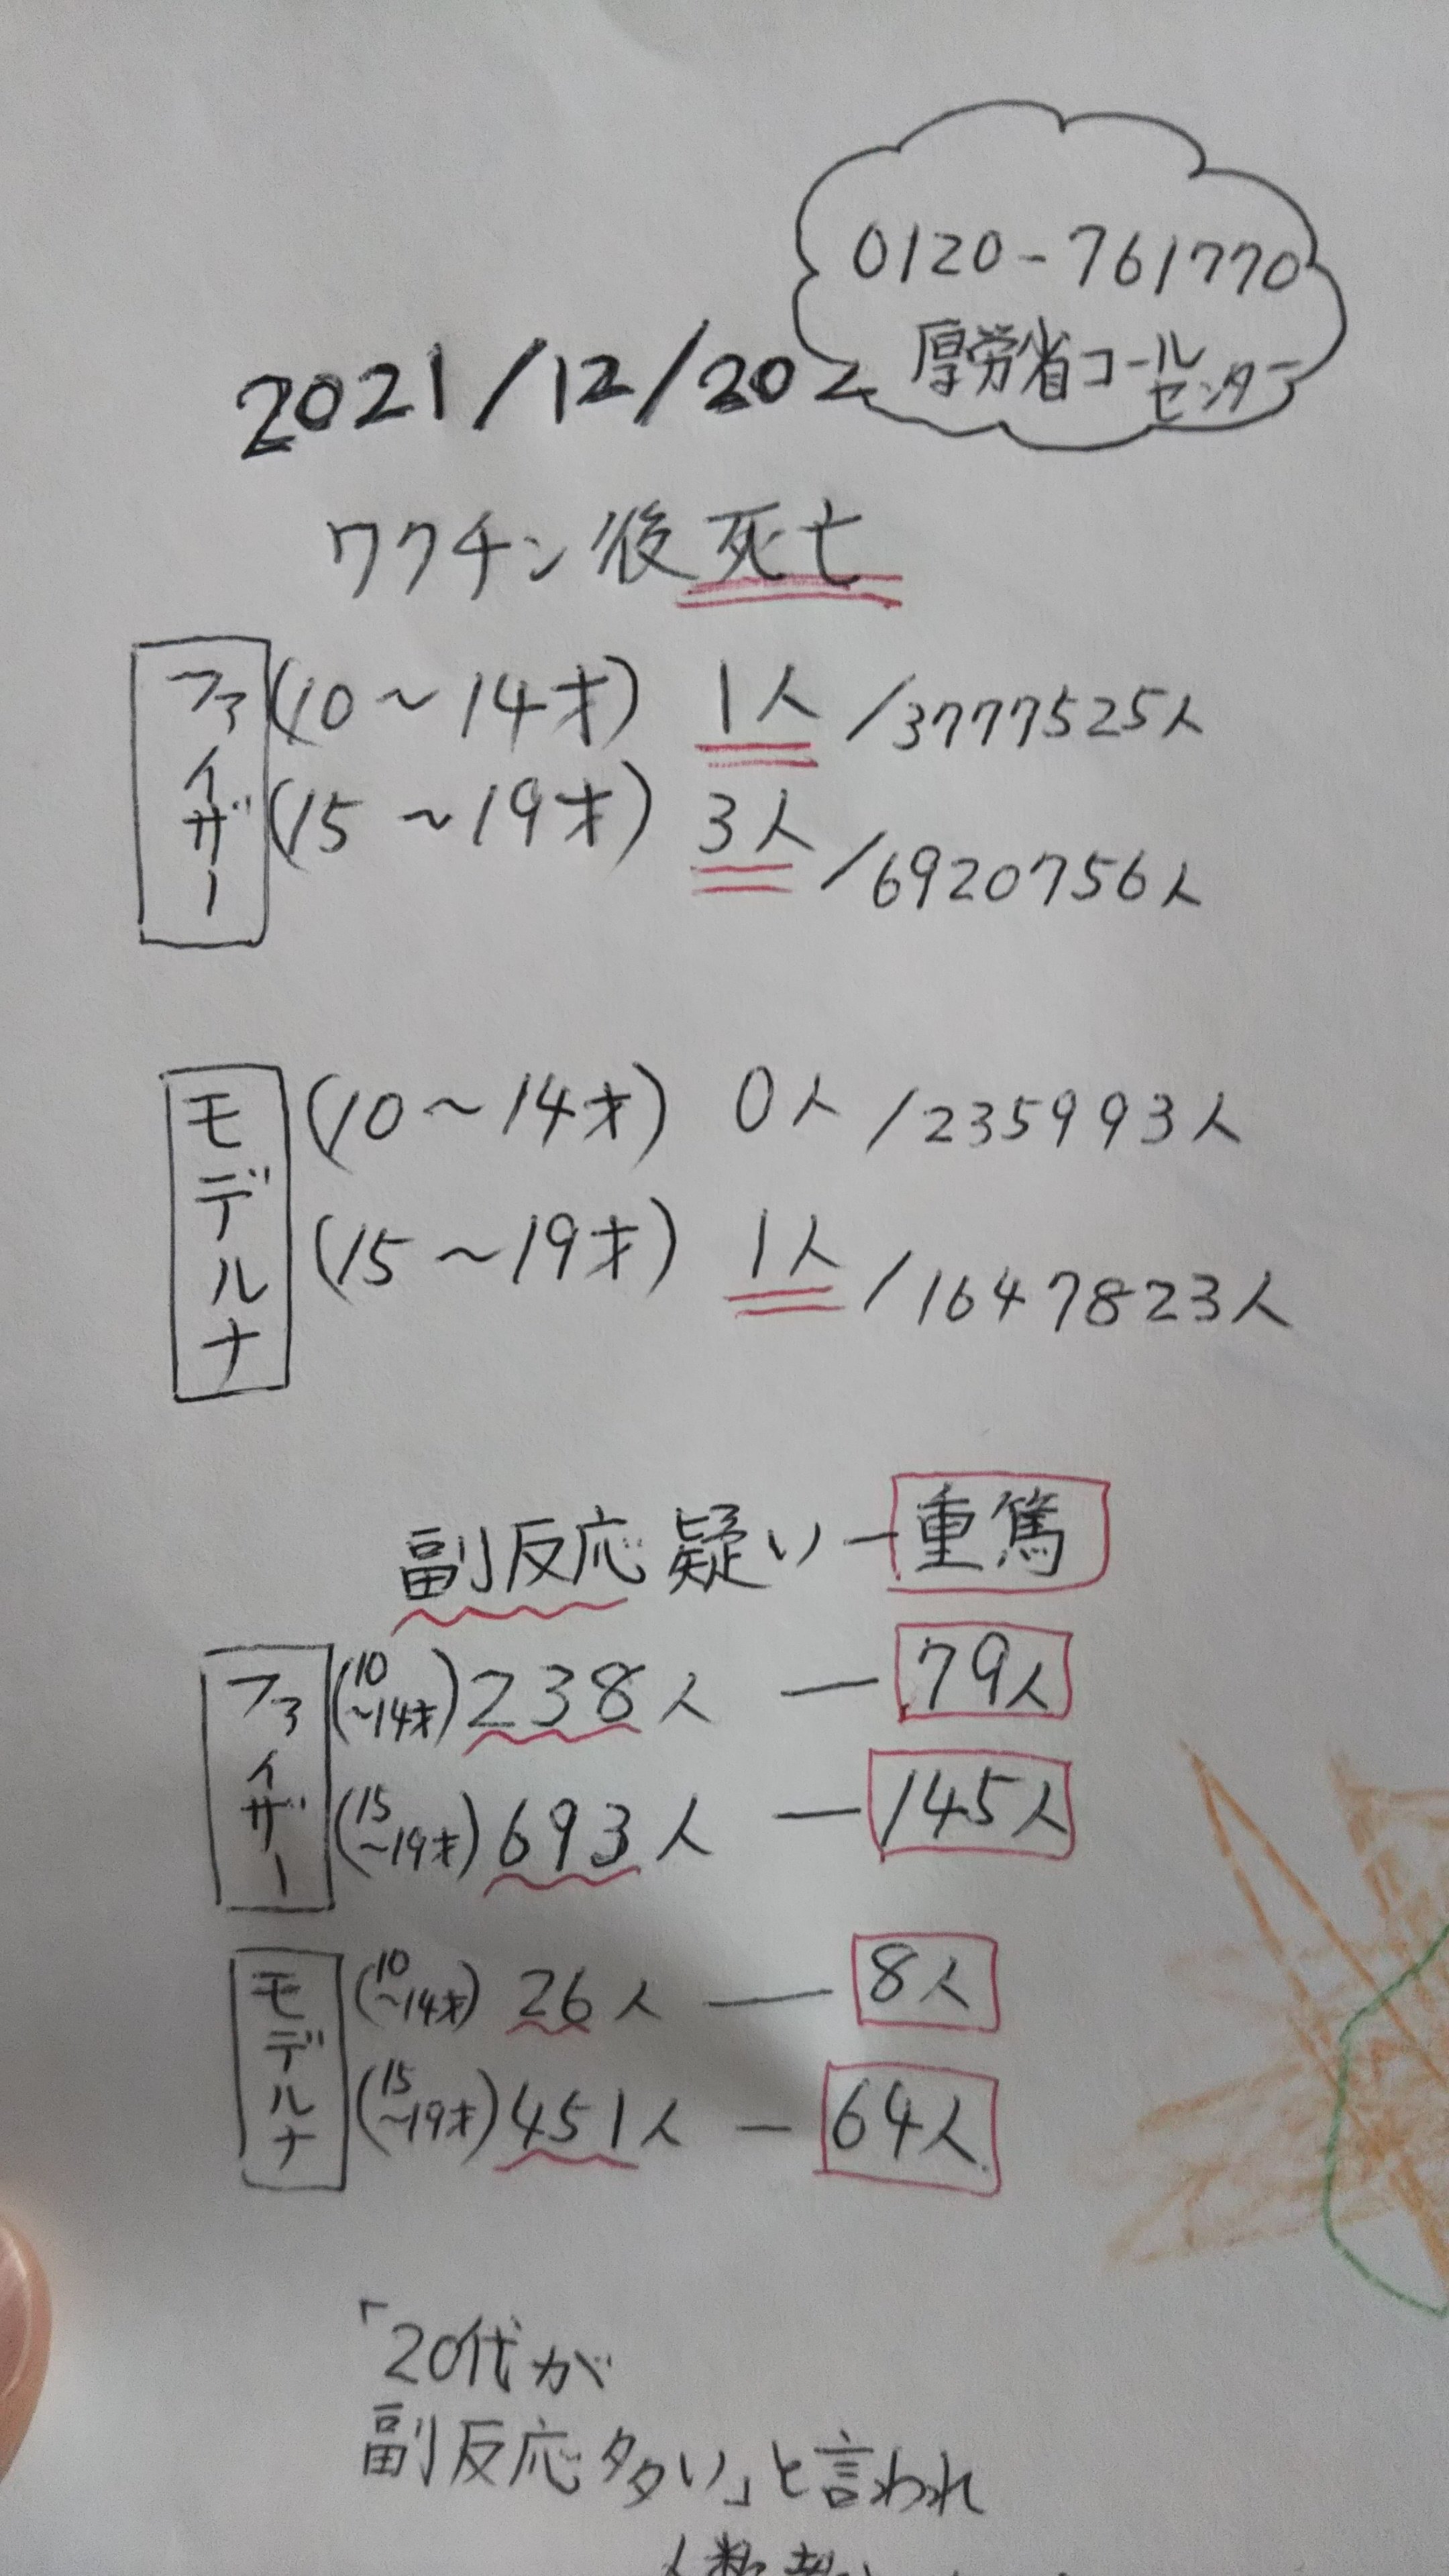 0120-761770
厚労省コールセンター
2021/12/20
ワクチン後死亡
ファイザー
(10～14才) 1人/3777525人
(15～19才) 3人/6920756人
モデルナ
(10～14才) 0人/235993人
(15～19才) 1人/1647823人
副反応疑い－重篤
ファイザー
(10～14才) 238人 － 79人
(15～19才) 693人 － 145人
モデルナ
(10～14才) 26人 － 8人
(15～19才) 451人 － 64人
「20代が
副反応多い」と言われ